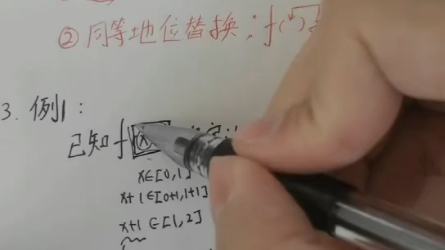 ② 同等地位替换：f(
3. 例1：
已知f(x)
x∈[0,1]
x+1∈[0+1,1+1]
x+1∈[1,2]